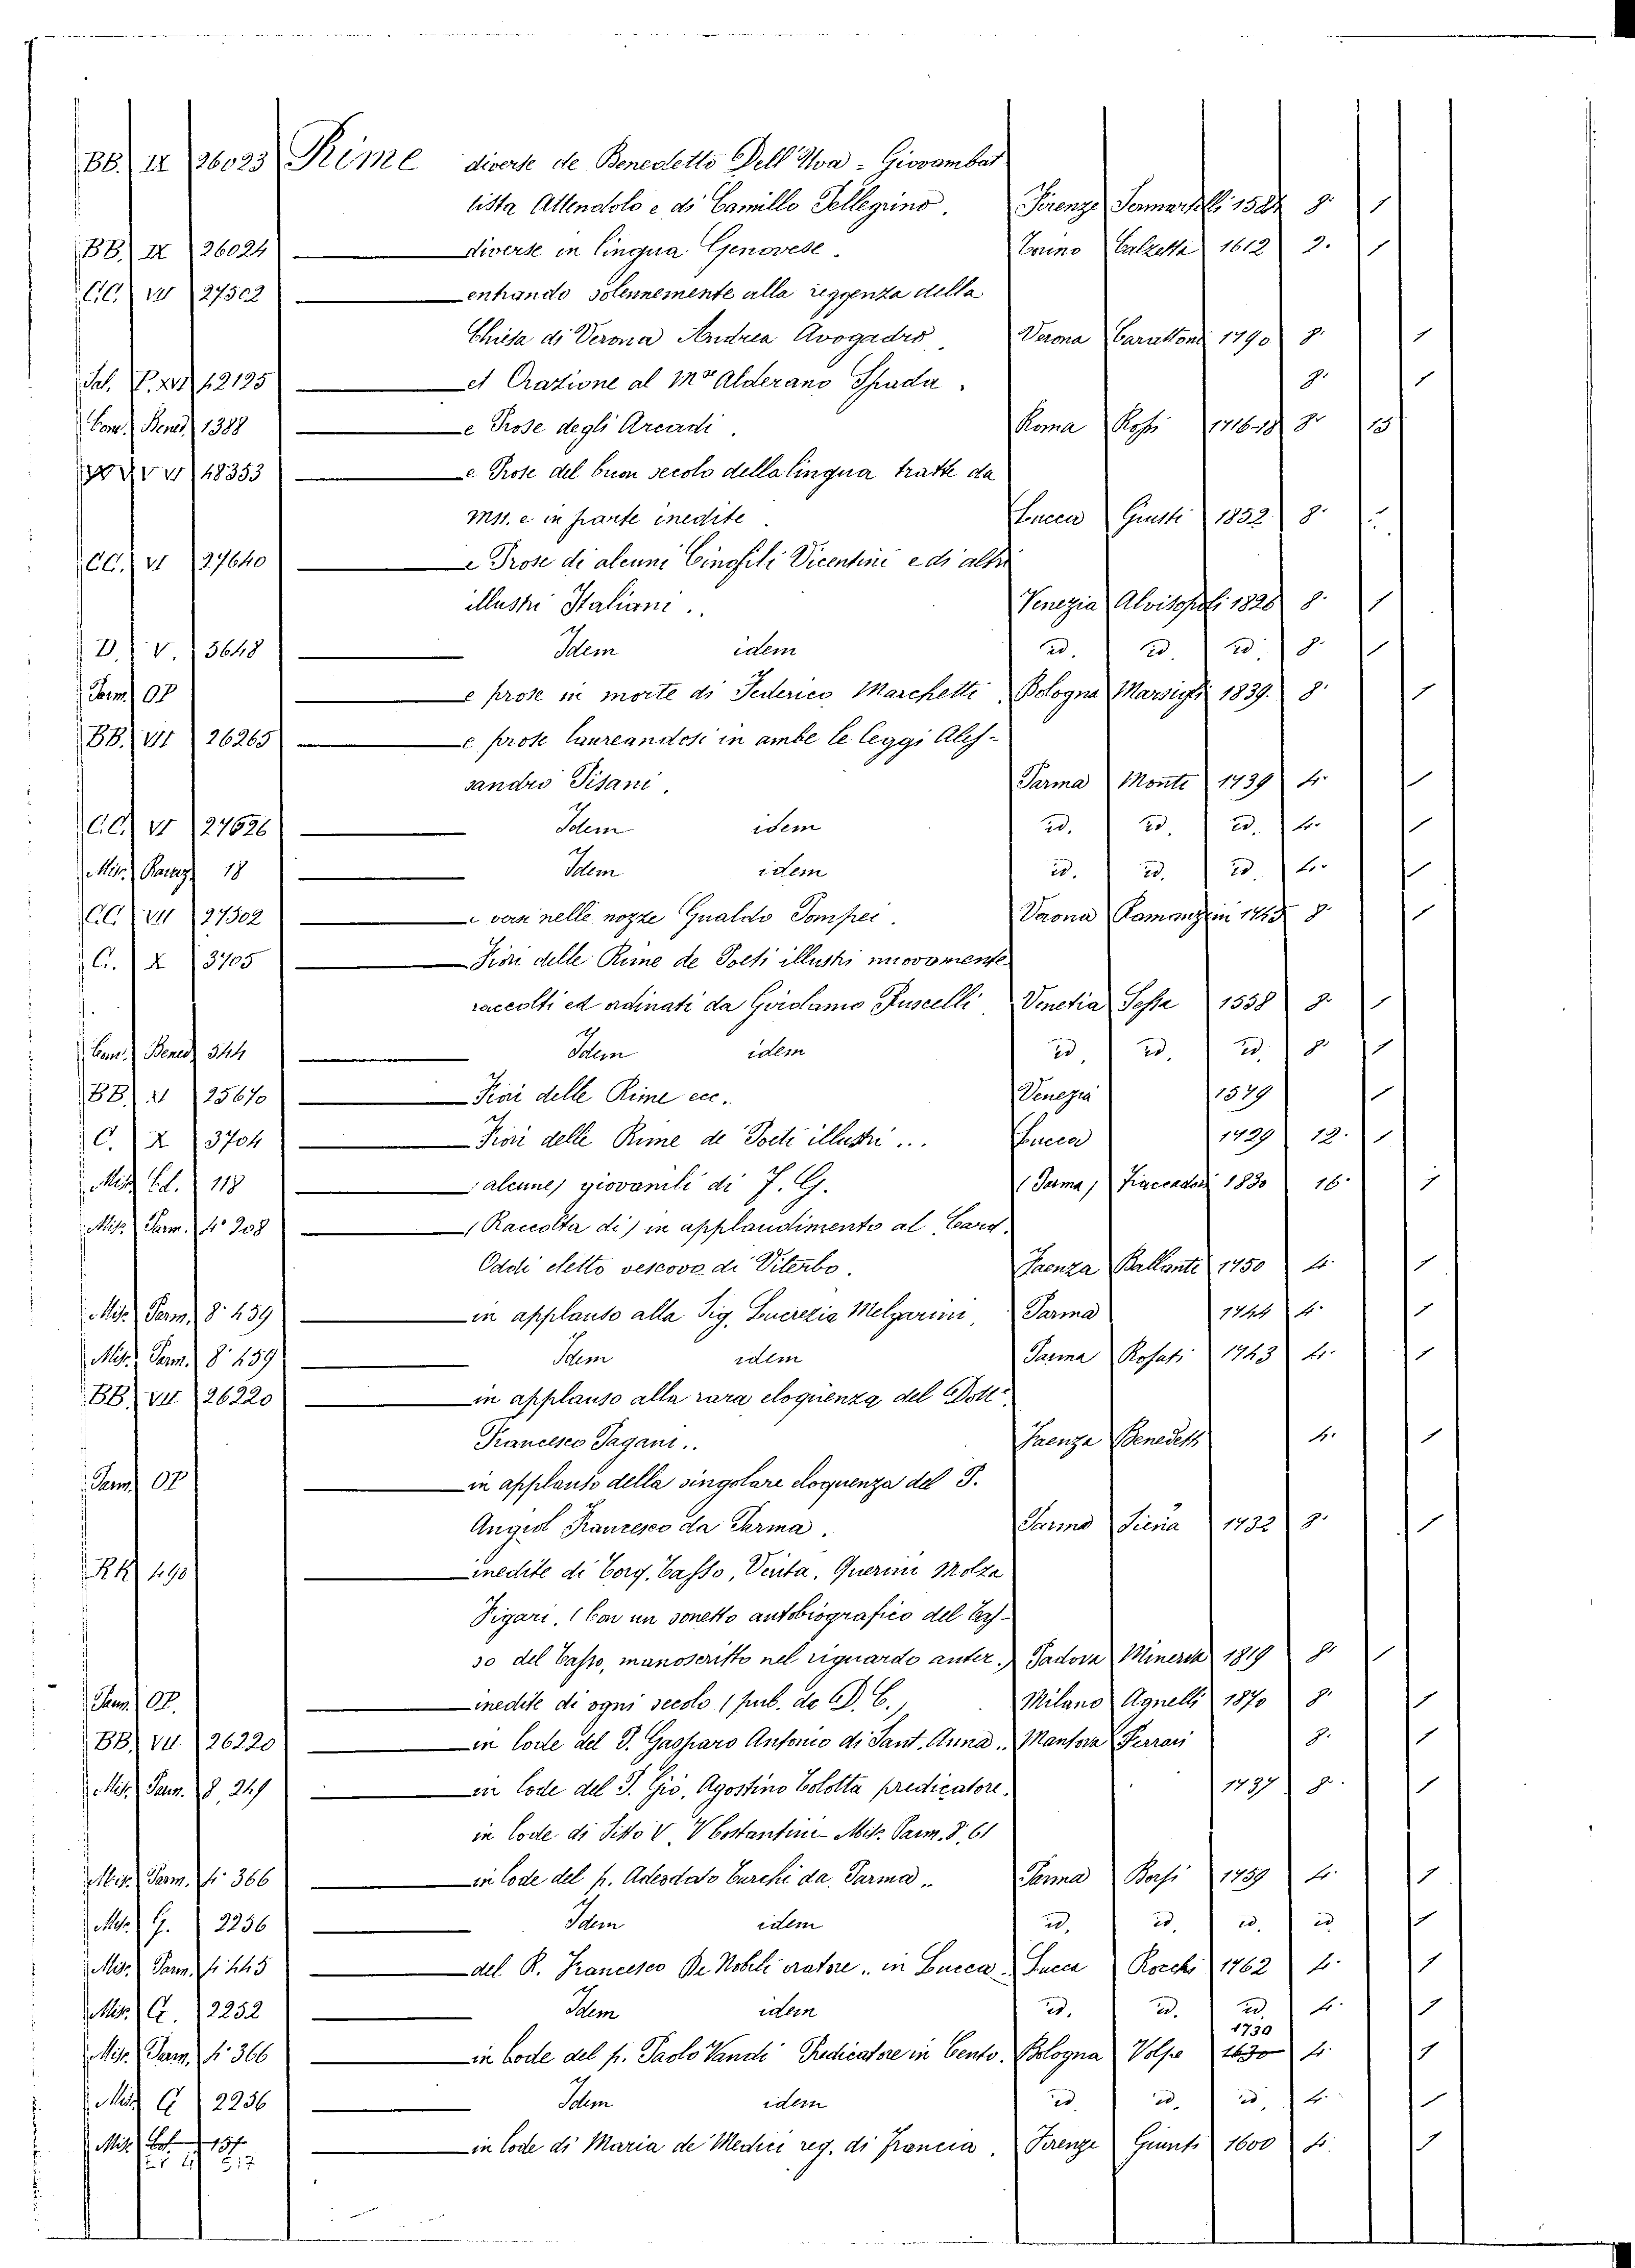 BB. IX 26023 Rime diverse de Benedetto Dell'Uva - Giovambat
tista Attendolo e di Camillo Pellegrino. Firenze Sermartelli 1584 8. 1
BB. IX 26024 diverse in lingua Genovese. Torino Calzetta 1612 2. 1
CC. VII 27302 entrando solennemente alla reggenza della
Chiesa di Verona Andrea Avogadro Verona Carattoni 1790 8. 1
Sal. P. XVI 12195 et Orazione al Mr Alderano Spada. 8. 1
Com. Bened. 1388 e Prose degli Arcadi. Roma Rossi 1716-18 8. 15
48353 e Prose del buon secolo della lingua tratte da
MSS. e in parte inedite. Lucca Giusti 1852 8.
CC. VI 27640 e Prose di alcuni Cinofili Vicentini e di altri
illustri Italiani. Venezia Alvisopoli 1826 8. 1
D. V. 5648 Idem idem id. id. id. 8. 1
Parm. OP e prose in morte di Federico Marchetti Bologna Marsigli 1839. 8. 1
BB. VII 26265 e prose laureandosi in ambe le leggi Ales-
sandro Pisani. Parma Monti 1739 4. 1
CC. VI 27626 Idem idem id. id. id. 4. 1
Mis. 18 Idem idem id. id. id. 4. 1
CC. VII 27302 e versi nelle nozze Gualdo Pompei. Verona Ramanzini 1745 8. 1
C. X 3705 Fiori delle Rime de Poeti illustri nuovamente
raccolti ed ordinati da Girolamo Ruscelli Venetia Sessa 1558 8. 1
Com. Bened. 544 Idem idem id. id. id. 8. 1
BB. XI 25670 Fiori delle Rime ecc. Venezia 1579 1
C. X 3704 Fiori delle Rime de Poeti illustri ... Lucca 1729 12. 1
Mis. Ed. 118 alcune) giovanili di F. G. (Parma) Fiaccadori 1830 16. 1
Mis. Parm. 4º 208 (Raccolta di) in applaudimento al Card.
Oddi eletto vescovo di Viterbo. Faenza Ballanti 1750 4. 1
Mis. Parm. 8º 459 in applauso alla Sig. Lucrezia Melgarini Parma 1744 4. 1
Mis. Parm. 8º 459 Idem idem Parma Rosati 1743 4. 1
BB. VII 26220 in applauso alla rara eloquenza del Dott.
Francesco Pagani.. Faenza Benedetti 4. 1
Parm. OP in applauso della singolare eloquenza del P.
Angiol Francesco da Parma. Parma Siena 1732 8. 1
RK 490 inedite di Torq. Tasso, Venta, Querini Molza
Figari. (Con un sonetto autobiografico del Tas-
so del Tasso, manoscritto nel riguardo anter.) Padova Minerva 1819 8. 1
Parm. OP. inedite di ogni secolo (pub. da D. C.) Milano Agnelli 1870 8. 1
BB. VII 26220 in lode del P. Gasparo Antonio di Sant. Anna.. Mantova Ferrari 8. 1
Mis. Parm. 8. 247 in lode del P. Gió. Agostino Colotta predicatore. 1737 8. 1
in lode di Sisto V. V Costantini - Mis. Parm. 8. 61
Mis. Parm. 4º 366 in lode del p. Adeodato Turchi da Parma.. Parma Borsi 1759 4. 1
Mis. G. 2236 Idem idem id. id. id. id 1
Mis. Parm. 4º 445 del R. Francesco De Nobili oratore.. in Lucca. Lucca Rocchi 1762 4. 1
Mis. G. 2252 Idem idem id. id. id. 4. 1
1730
Mis. Parm. 4º 366 in lode del p. Paolo Vandi Predicatore in Cento. Bologna Volpe 1630 4. 1
Mis. G 2236 Idem idem id. id. id. 4. 1
Mis. Bot. 157 in lode di Maria de Medici reg. di Francia. Firenze Giunti 1600 4. 1